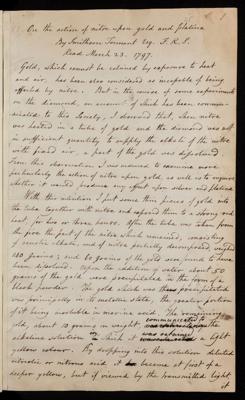 On the action of nitre upon gold and platina
By Smithson Tennant Esq. F.R.S.
Read March 23. 1797.
Gold, which cannot be calcined by exposure to heat
and air, has been also considered as incapable of being
affected by nitre. But in the course of some experiments
on the diamond, an account of which has been commun-
icated to this Society, I observed that, when nitre
was heated in a tube of gold and the diamond was not
in sufficient quantity to supply the alkali of the nitre
with fixed air, a part of the gold was dissolved.
From this observation I was induced to examine more
particularly the action of nitre upon gold, as well as to inquire
whether it would produce any effect upon silver and platina
With this intention I put some thin pieces of gold into
the tube together with nitre and exposed them to a strong red
heat for two or three hours. After the tube was taken from
the fire the part of the nitre which remained, consisting
of caustic alkali, and of nitre partially decomposed weighed
140 grains; and 60 grains of the gold were found to have
been dissolved. Upon the addition of water about 50
grains of the gold were precipitated in the form of a
black powder. The gold which was thus precipitated
was principally in its metallic state, the greater portion
of it being insoluble in marine acid. The remaining
gold, about 10 grains in weight, communicated to the
alkaline solution in which it was retained a light
yellow colour. By dropping into this solution diluted
vitriolic or nitrous acid it became at first of a
deeper yellow, but if viewed by the transmitted light
it